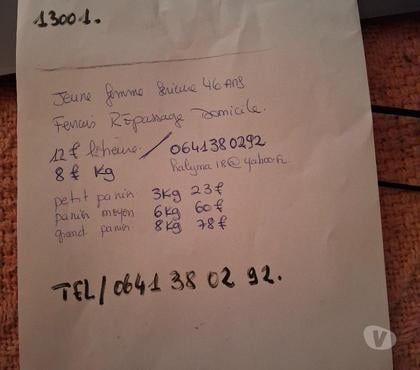 13001.
Jeune femme sérieuse 46 ANS
Ferais REpassage Domicile.
12 € l'heure. / 0641380292
8 € Kg
petit panier 3Kg 23 €
panier moyen 6Kg 60 €
grand panier 8Kg 78 €
TEL/0641 38 02 92.
V